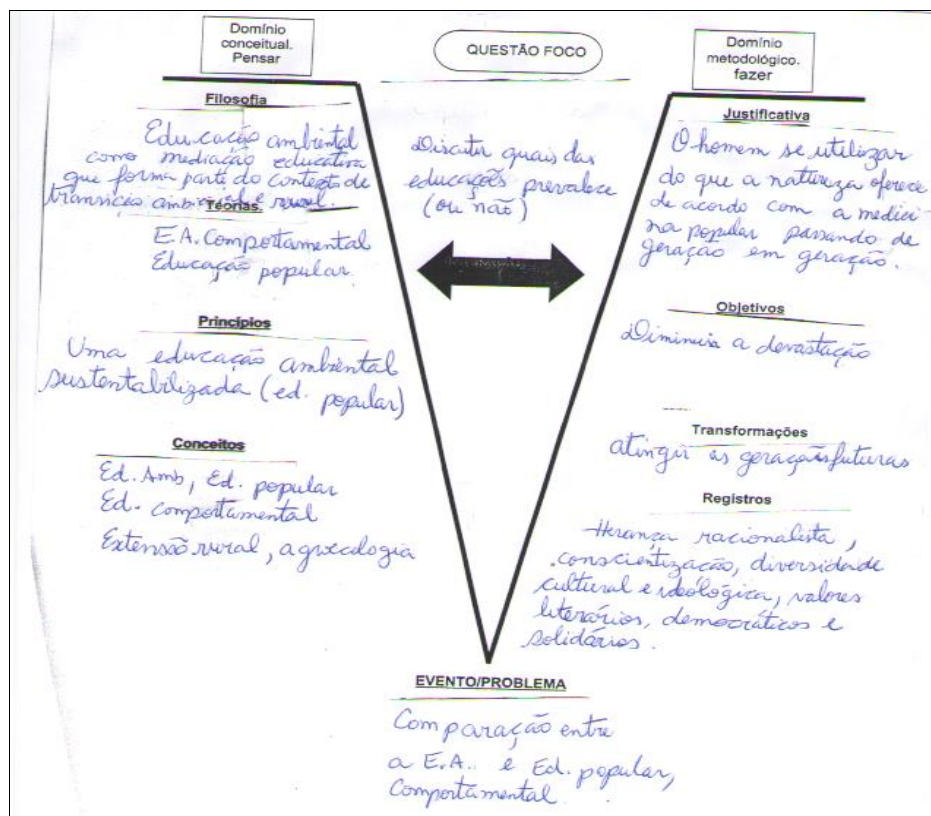 Domínio
conceitual.
Pensar
Filosofia
Educação ambiental
como mediação educativa
que forma parte do contexto de
transição ambiental e rural.
Teorias.
E.A. Comportamental
Educação popular.
Princípios
Uma educação ambiental
sustentabilizada (ed. popular)
Conceitos
Ed. Amb, Ed. popular
Ed. comportamental
Extensão rural, agroecologia
QUESTÃO FOCO
Discutir quais das
educações prevalece
(ou não)
Domínio
metodológico.
fazer
Justificativa
O homem se utilizar
do que a natureza oferece
de acordo com a medici
na popular passando de
geração em geração.
Objetivos
Diminuir a devastação
Transformações
atingir as gerações futuras
Registros
Herança racionalista,
conscientização, diversidade
cultural e ideológica, valores
literários, democráticos e
solidários.
EVENTO/PROBLEMA
Comparação entre
a E.A. e Ed. popular,
Comportamental.